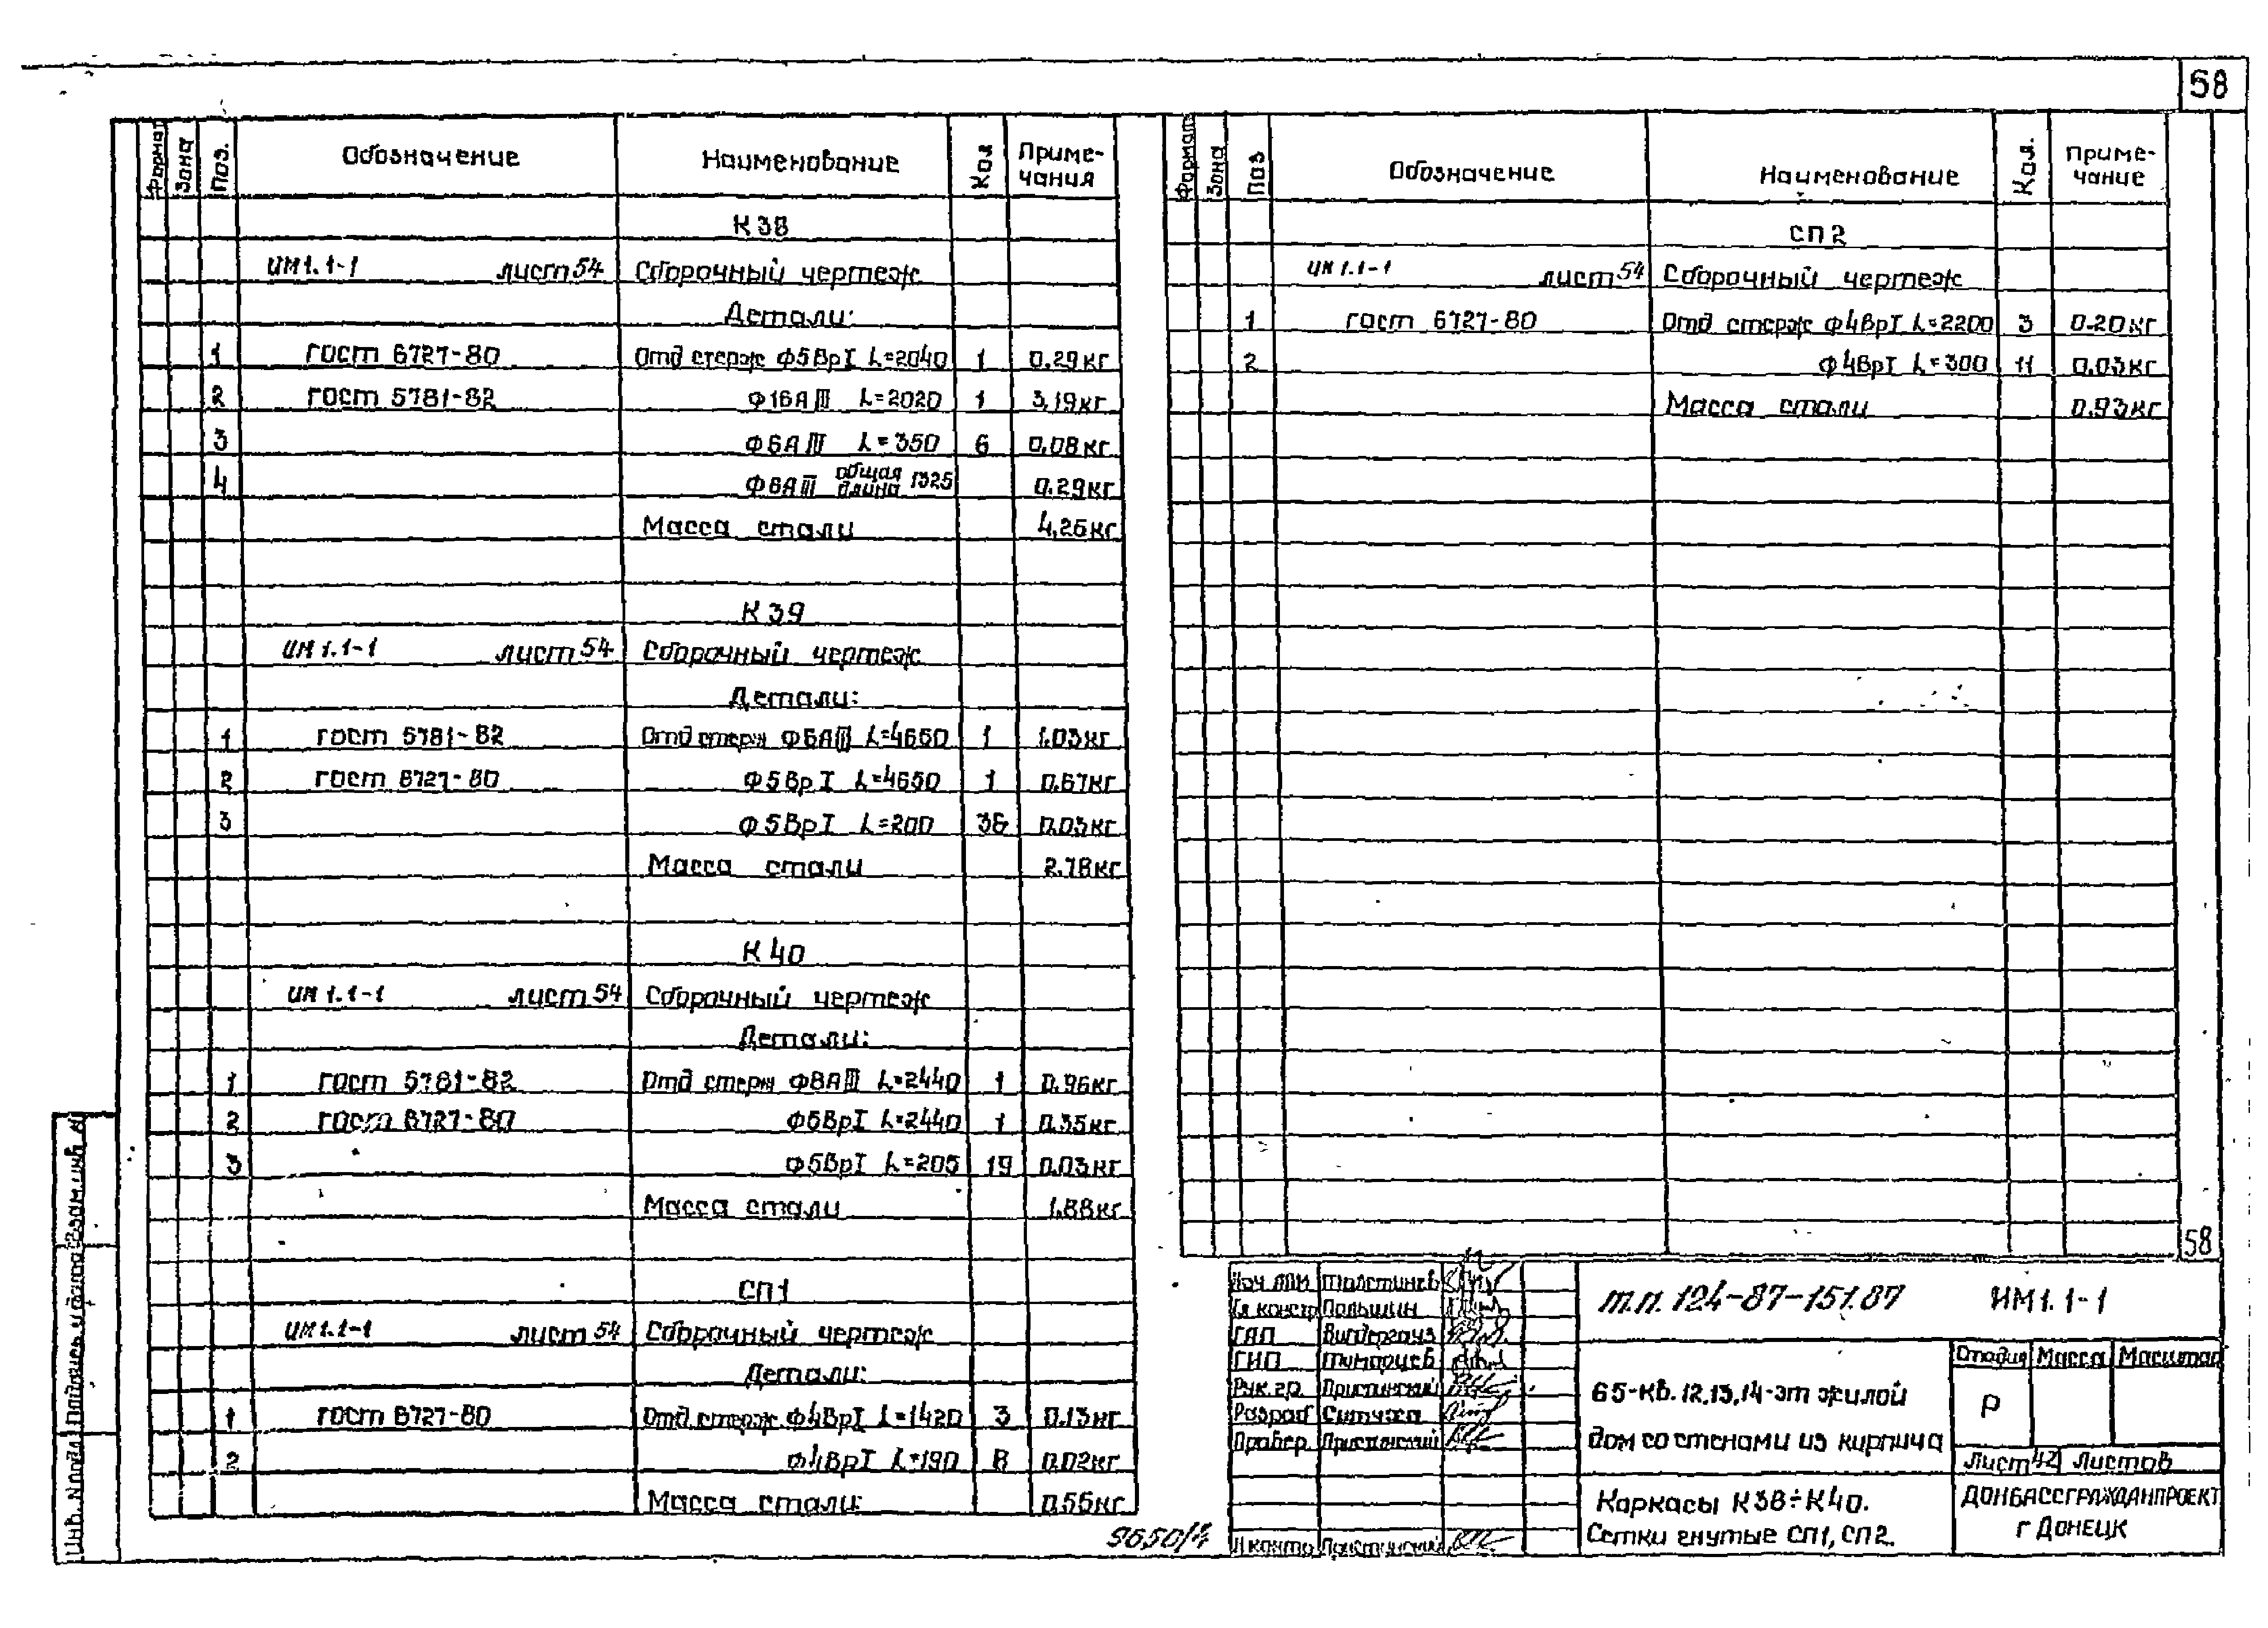 58
Формат Зона Поз. Обозначение Наименование Кол Приме-
чания
К38
ИМ1.1-1 лист 54 Сборочный чертеж
Детали:
1 ГОСТ 6727-80 Отд стерж Ф5ВрI L=2040 1 0.29кг
2 ГОСТ 5781-82 Ф16АIII L=2020 1 3,19кг
3 Ф6АIII L=350 6 0.08кг
4 Ф6АIII общая длина 1325 0.29кг
Масса стали 4.26кг
К39
ИМ1.1-1 лист 54 Сборочный чертеж
Детали:
1 ГОСТ 5781-82 Отд стерж Ф6АIII L=4650 1 1.03кг
2 ГОСТ 6727-80 Ф5ВрI L=4650 1 0.67кг
3 Ф5ВрI L=200 36 0.03кг
Масса стали 2.78кг
К40
ИМ1.1-1 лист 54 Сборочный чертеж
Детали:
1 ГОСТ 5781-82 Отд стерж Ф8АIII L=2440 1 0.96кг
2 ГОСТ 6727-80 Ф5ВрI L=2440 1 0.35кг
3 Ф5ВрI L=205 19 0.03кг
Масса стали 1.88кг
СП1
ИМ1.1-1 лист 54 Сборочный чертеж
Детали:
1 ГОСТ 6727-80 Отд стерж Ф4ВрI L=1420 3 0.13кг
2 Ф4ВрI L=190 8 0.02кг
Масса стали 0.55кг
Формат Зона Поз Обозначение Наименование Кол. Приме-
чание
СП2
ИМ1.1-1 лист 54 Сборочный чертеж
1 ГОСТ 6727-80 Отд стерж Ф4ВрI L=2200 3 0.20кг
2 Ф4ВрI L=300 11 0.03кг
Масса стали 0.93кг
58
Нач АПМ
Гл констр Польшин
ГАП Вигдергауз
ГИП
Рук.гр. Приспинский
Разраб Ситуха
Провер. Приспинский
Н контр Приспинский
т.п. 124-87-151.87 ИМ1.1-1
65-кв.12,13,14-эт жилой
дом со стенами из кирпича
Стадия Масса Масштаб
Р
Лист 42 Листов
Каркасы К38÷К40.
Сетки гнутые СП1,СП2.
ДОНБАССГРАЖДАНПРОЕКТ
г Донецк
9650/4
Инв.Nподл Подпись и дата Взам.инв.N